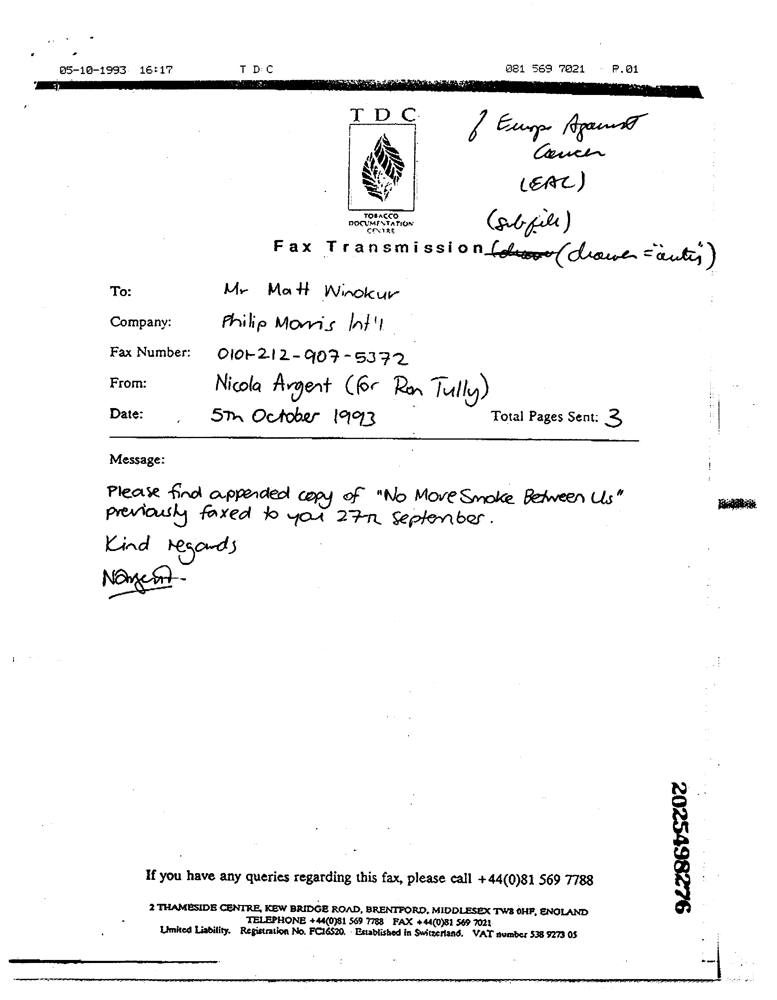 05-10-1993 16:17 T D C 081 569 7021 P.01
T D C
TOBACCO
DOCUMENTATION
CENTRE
Europe Against
Cancer
(EAC)
(subfile)
(drawer = "antis")
Fax Transmission
To: Mr Matt Winokur
Company: Philip Morris Int'l
Fax Number: 0101-212-907-5372
From: Nicola Argent (for Ron Tully)
Date: 5th October 1993 Total Pages Sent: 3
Message:
Please find appended copy of "No More Smoke Between Us"
previously faxed to you 27th September.
Kind regards
NArgent
2025498276
If you have any queries regarding this fax, please call +44(0)81 569 7788
2 THAMESIDE CENTRE, KEW BRIDGE ROAD, BRENTFORD, MIDDLESEX TW8 0HF, ENGLAND
TELEPHONE +44(0)81 569 7788 FAX +44(0)81 569 7021
Limited Liability. Registration No. FC16520. Established in Switzerland. VAT number 538 9273 05